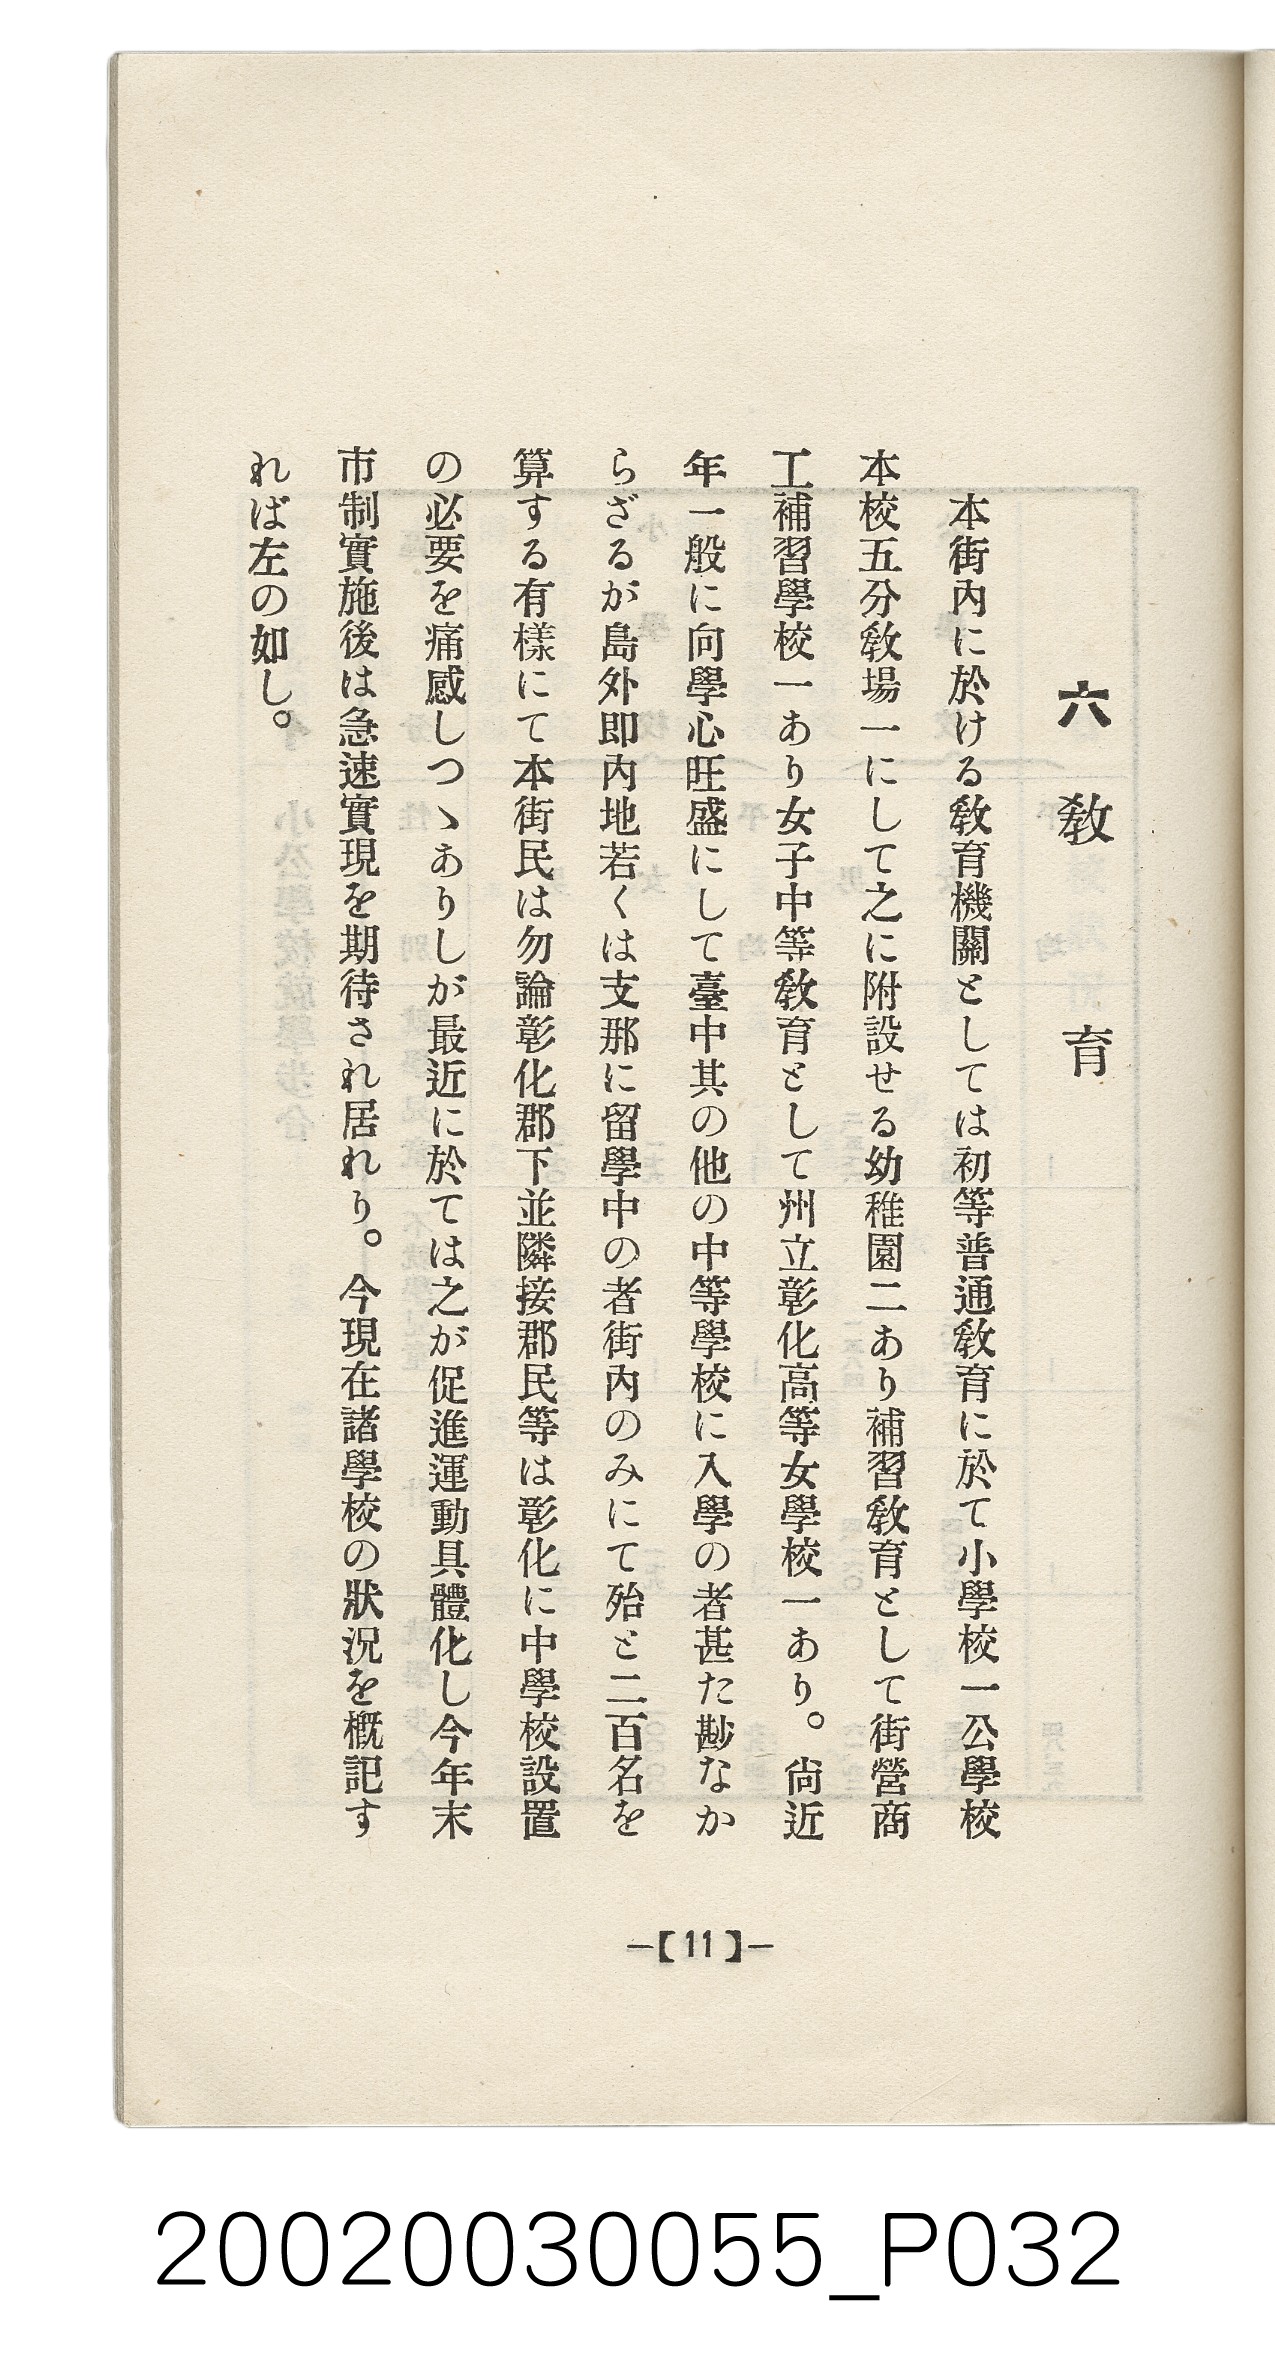 六 敎 育
本街內に於ける敎育機關としては初等普通敎育に於て小學校一公學校
本校五分敎場一にして之に附設せる幼稚園二あり補習敎育として街營商
工補習學校一あり女子中等敎育として州立彰化高等女學校一あり。尙近
年一般に向學心旺盛にして臺中其の他の中等學校に入學の者甚た尠なか
らざるが島外即內地若くは支那に留學中の者街內のみにて殆ど二百名を
算する有樣にて本街民は勿論彰化郡下並隣接郡民等は彰化に中學校設置
の必要を痛感しつゝありしが最近に於ては之が促進運動具體化し今年末
市制實施後は急速實現を期待され居れり。今現在諸學校の狀況を槪記す
れば左の如し。
—【11】—
20020030055_P032